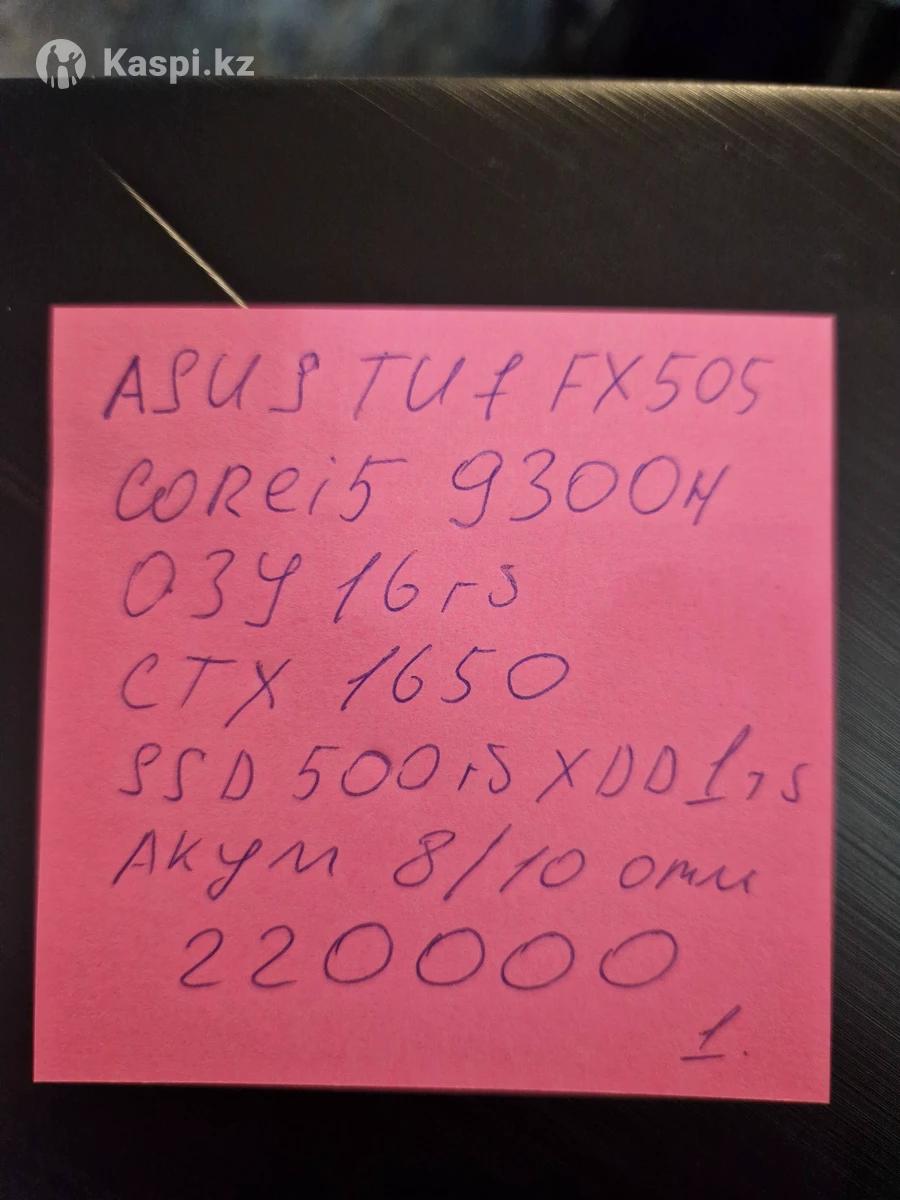 Kaspi.kz
ASUS TUf FX505
COREi5 9300н
ОЗУ 16гБ
СТХ 1650
SSD 500гБ ХDD 1тБ
Акум 8/10 отл
220000
1.